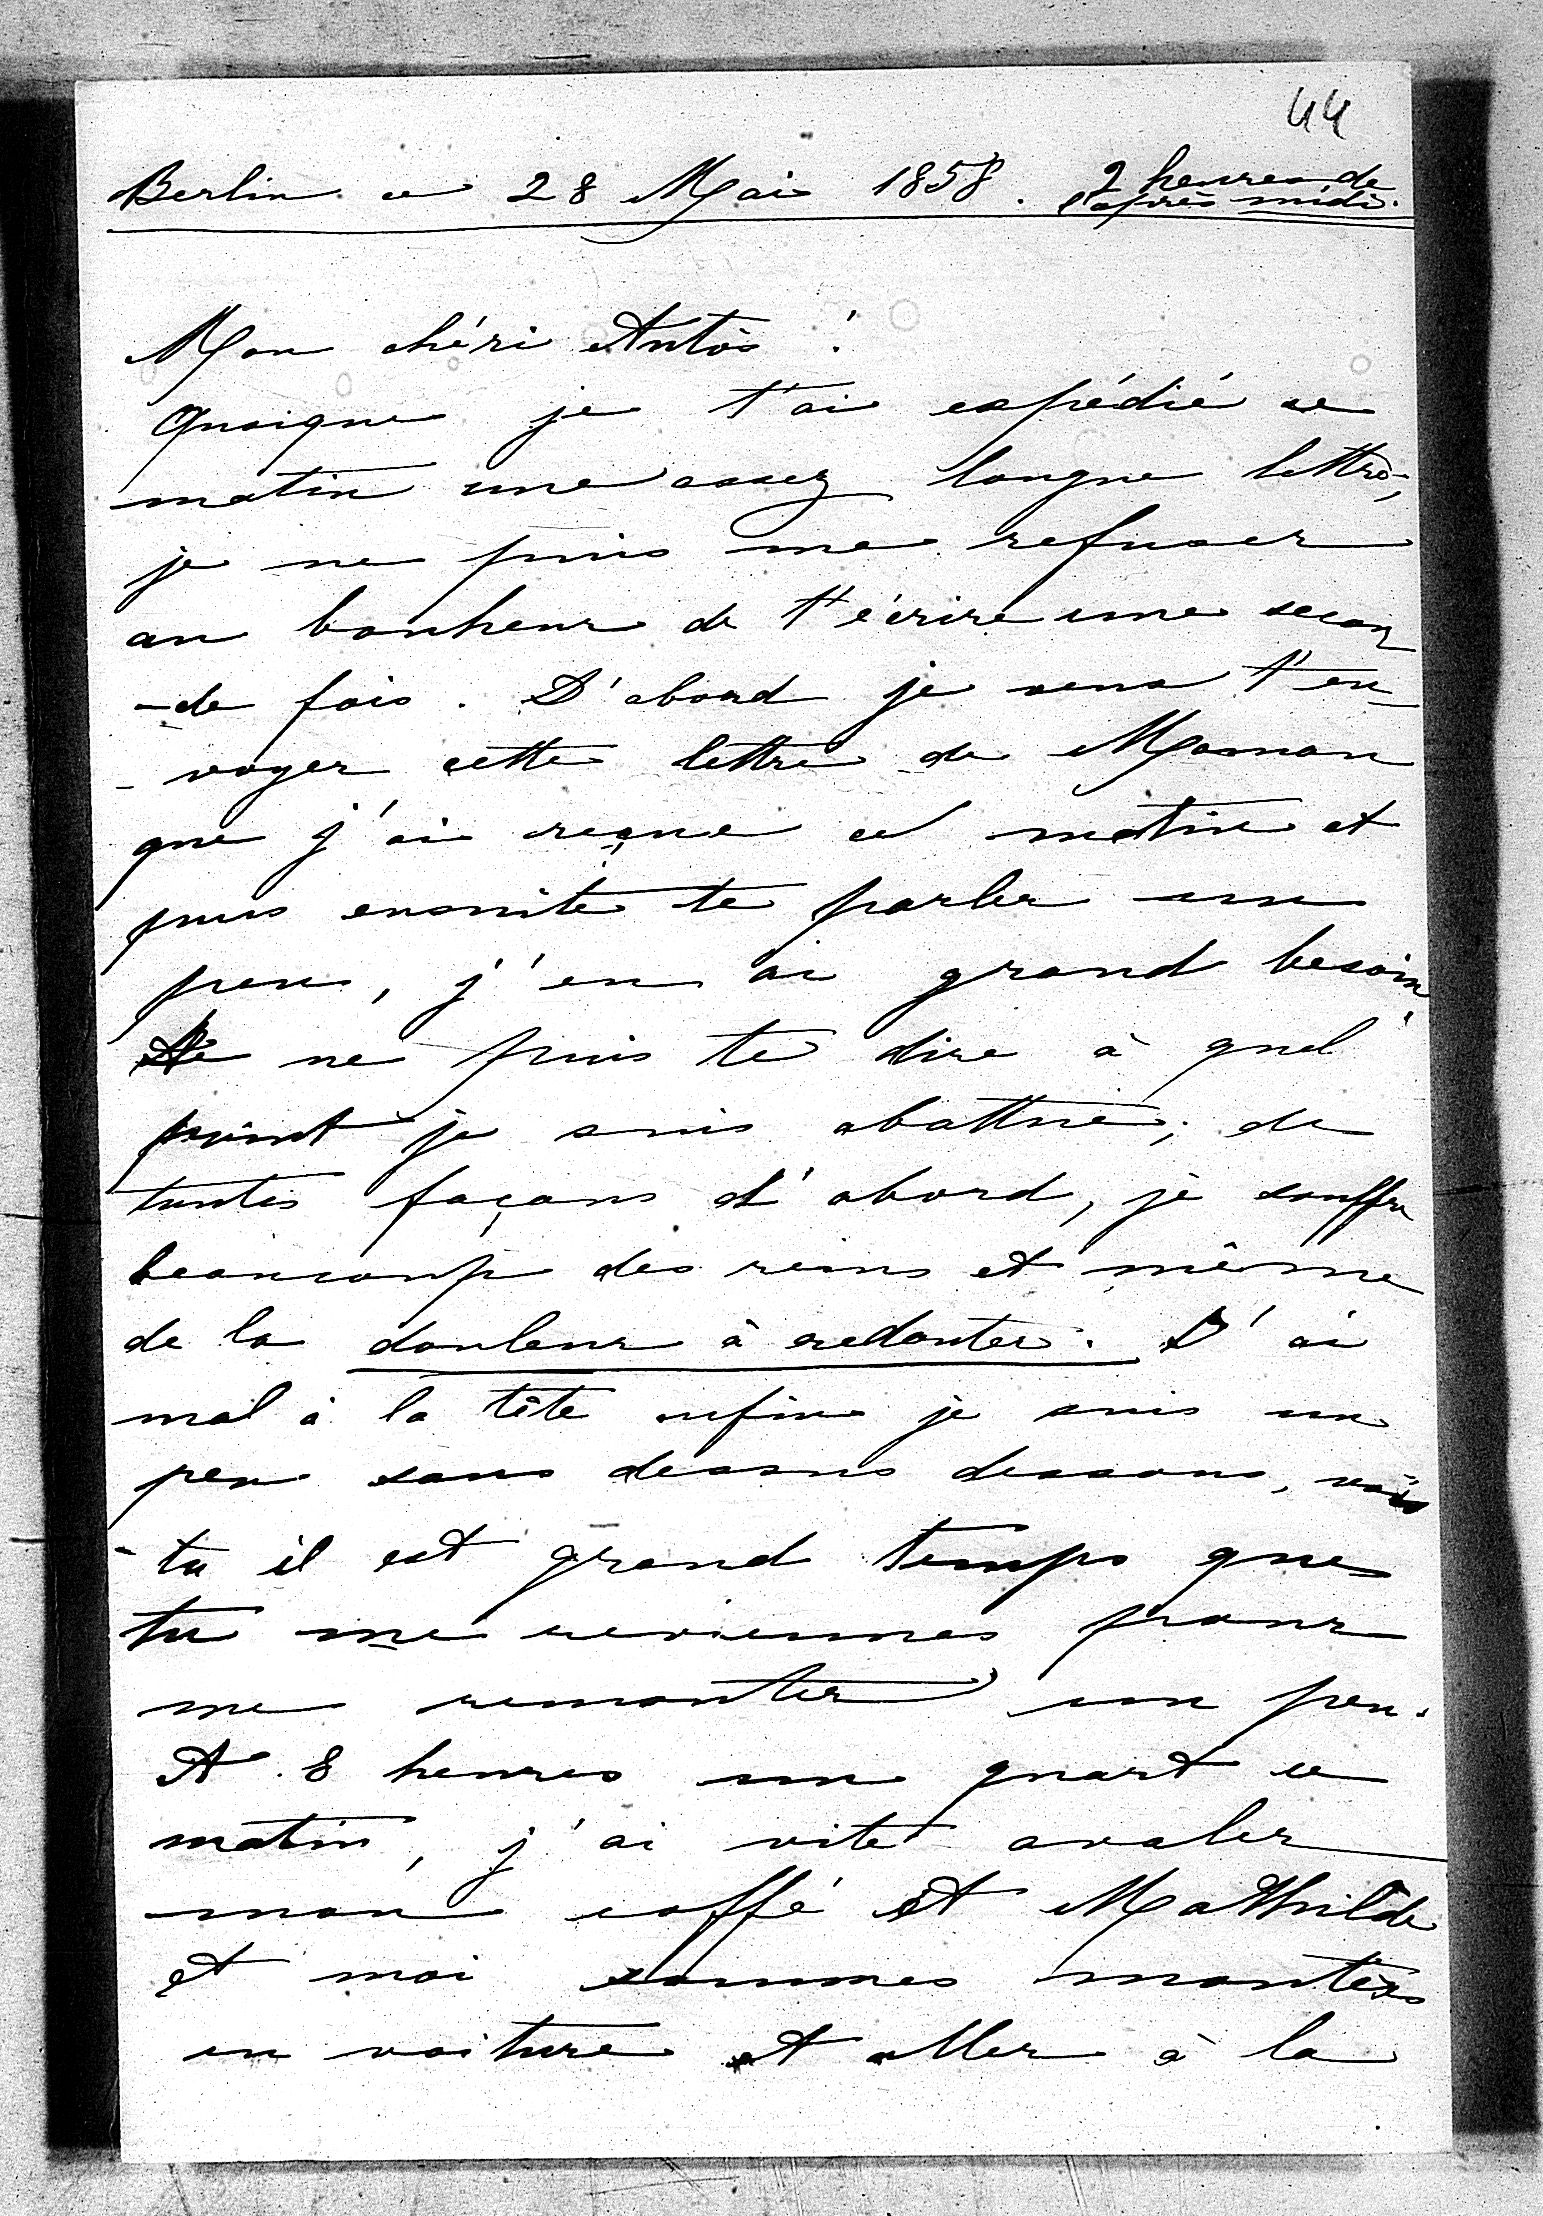 44
Berlin ce 28 Mai 1858. 2 heures de
l'après midi.
Mon chéri Antós !
Quoique je t'ai expédié ce
matin une assez longue lettre,
je ne puis me refuser
au bonheur de t'écrire une secon
-de fois. D'abord je veux t'en-
-voyer cette lettre de Maman
que j'ai reçue ce matin et
puis ensuite te parler un
peu, j'en ai grand besoin.
Je ne puis te dire à quel
point je suis abattue; de
toutes façons d'abord, je souffre
beaucoup des reins et même
de la douleur à redouter. J'ai
mal à la tête enfin je suis un
peu sans dessus dessous, vois
-tu il est grand temps que
tu me reviennes pour
me remonter un peu.
A 8 heures un quart ce
matin, j'ai vite avaler
mon caffé et Mathilde
et moi sommes montées
en voiture et aller à la